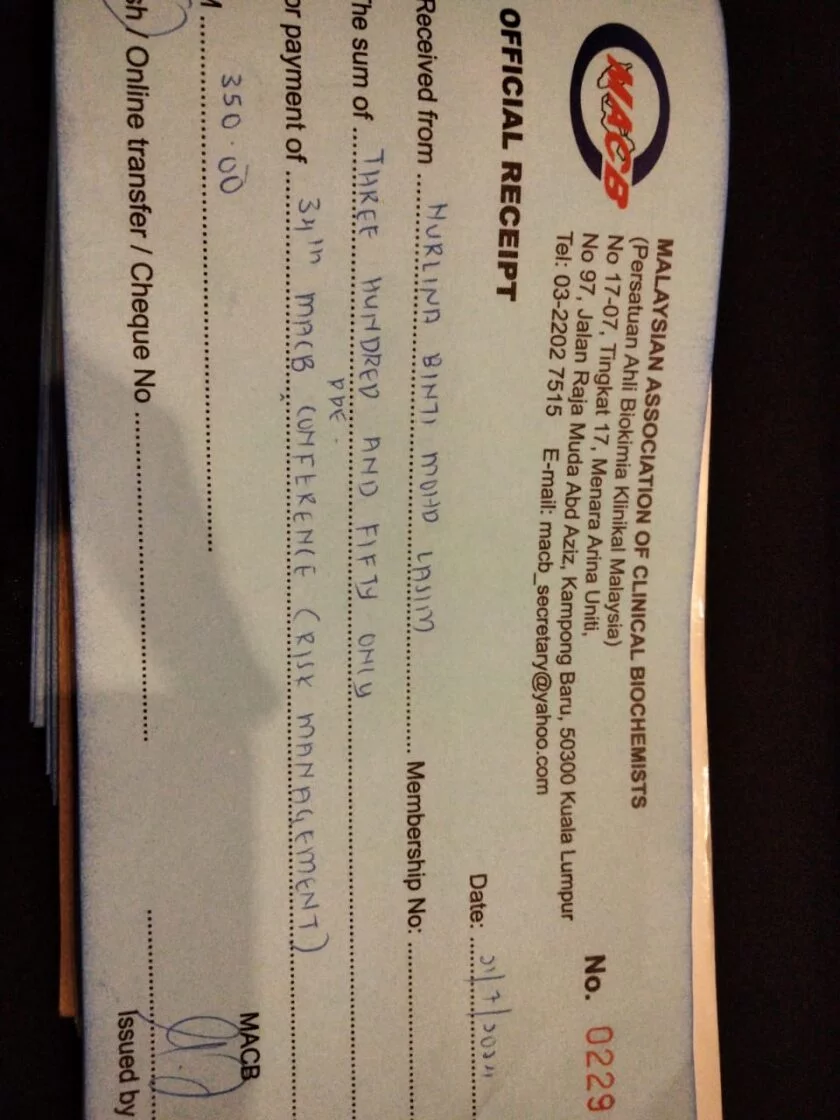 MACB
MALAYSIAN ASSOCIATION OF CLINICAL BIOCHEMISTS
(Persatuan Ahli Biokimia Klinikal Malaysia)
No 17-07, Tingkat 17, Menara Arina Uniti,
No 97, Jalan Raja Muda Abd Aziz, Kampong Baru, 50300 Kuala Lumpur
Tel: 03-2202 7515 E-mail: macb_secretary@yahoo.com
No. 0229
OFFICIAL RECEIPT
Date: /7/2024
Received from NURLINA BINTI MOHD LASIM Membership No:
he sum of THREE HUNDRED AND FIFTY ONLY
PRE-
or payment of 34th MACB CONFERENCE (RISK MANAGEMENT)
M 350.00
MACB
sh / Online transfer / Cheque No
Issued by